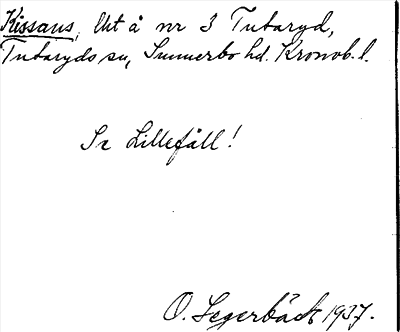 Kissans, Ut å nr 3 Tutaryd,
Tutaryds sn, Sunnerbo hd. Kronob. l.
Se Lillefäll!
O. Segerbäck 1937.